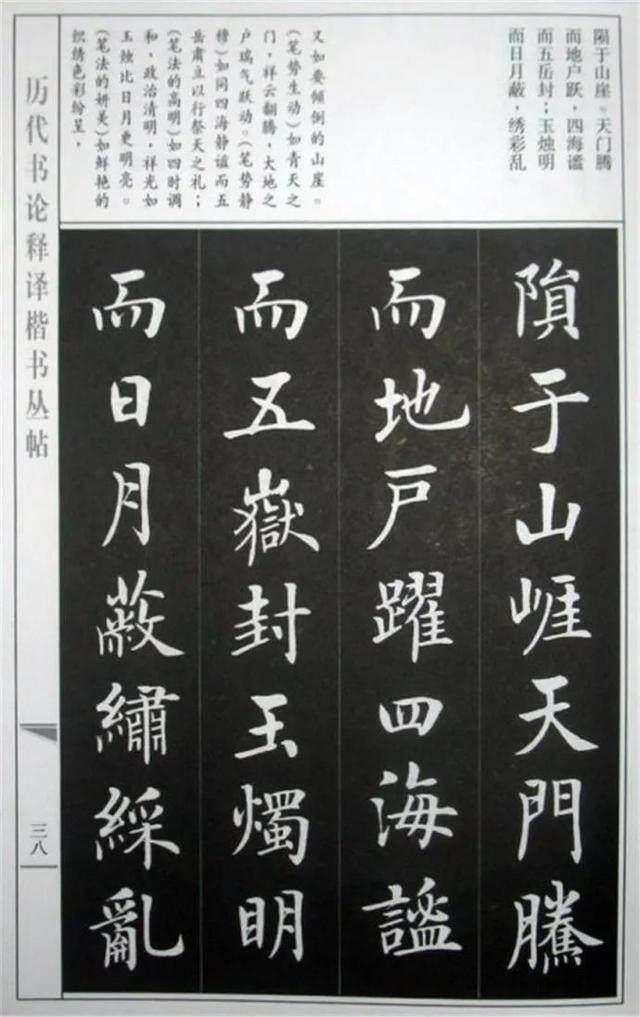 陨于山崖。天门腾
而地户跃，四海谧
而五岳封；玉烛明
而日月蔽，绣彩乱
又如要倾倒的山崖。
(笔势生动)如青天之
门，祥云翻腾，大地之
户瑞气跃动。(笔势静
穆)如同四海静谧而五
岳肃立以行祭天之礼；
(笔法的高明)如四时调
和，政治清明，祥光如
玉烛比日月更明亮。
(笔法的妍美)如鲜艳的
织绣色彩纷呈，
隕于山崕天門騰
而地戸躍四海謐
而五嶽封玉燭明
而日月蔽繡綵亂
历代书论释译楷书丛帖
三八